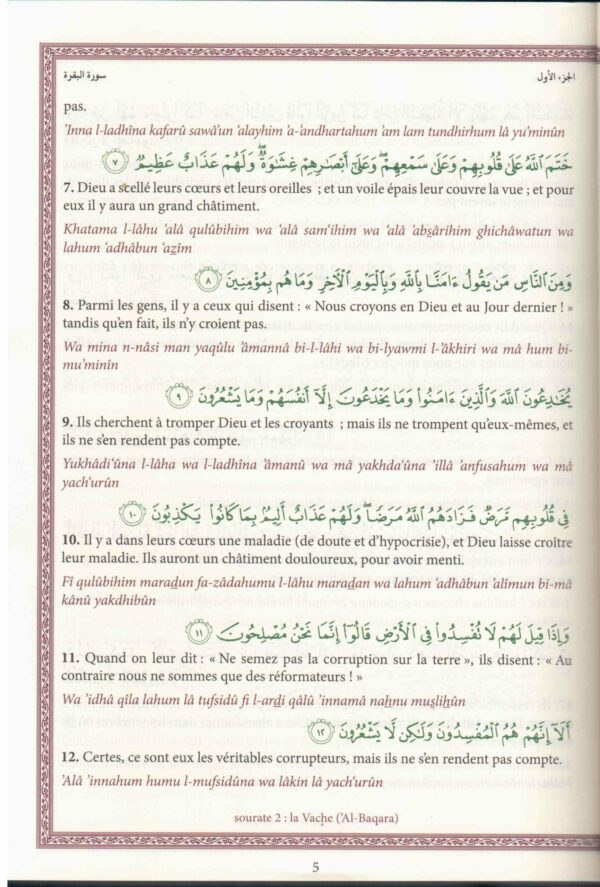 سورة البقرة
الجزء الأول
pas.
'Inna l-ladhîna kafarû sawâ'un 'alayhim 'a-'andhartahum 'am lam tundhirhum lâ yu'minûn
خَتَمَ اللَّهُ عَلَىٰ قُلُوبِهِمْ وَعَلَىٰ سَمْعِهِمْ ۖ وَعَلَىٰ أَبْصَارِهِمْ غِشَاوَةٌ ۖ وَلَهُمْ عَذَابٌ عَظِيمٌ ٧
7. Dieu a scellé leurs cœurs et leurs oreilles ; et un voile épais leur couvre la vue ; et pour
eux il y aura un grand châtiment.
Khatama l-lâhu 'alâ qulûbihim wa 'alâ sam'ihim wa 'alâ 'abs̲ârihim ghichâwatun wa
lahum 'adhâbun 'az̲îm
وَمِنَ النَّاسِ مَن يَقُولُ ءَامَنَّا بِاللَّهِ وَبِالْيَوْمِ الْآخِرِ وَمَا هُم بِمُؤْمِنِينَ ٨
8. Parmi les gens, il y a ceux qui disent : « Nous croyons en Dieu et au Jour dernier ! »
tandis qu'en fait, ils n'y croient pas.
Wa mina n-nâsi man yaqûlu 'âmannâ bi-l-lâhi wa bi-lyawmi l-'âkhiri wa mâ hum bi-
mu'minîn
يُخَادِعُونَ اللَّهَ وَالَّذِينَ ءَامَنُوا وَمَا يَخْدَعُونَ إِلَّا أَنفُسَهُمْ وَمَا يَشْعُرُونَ ٩
9. Ils cherchent à tromper Dieu et les croyants ; mais ils ne trompent qu'eux-mêmes, et
ils ne s'en rendent pas compte.
Yukhâdi'ûna l-lâha wa l-ladhîna 'âmanû wa mâ yakhda'ûna 'illâ 'anfusahum wa mâ
yach'urûn
فِي قُلُوبِهِم مَّرَضٌ فَزَادَهُمُ اللَّهُ مَرَضًا ۖ وَلَهُمْ عَذَابٌ أَلِيمٌ بِمَا كَانُوا يَكْذِبُونَ ١٠
10. Il y a dans leurs cœurs une maladie (de doute et d'hypocrisie), et Dieu laisse croître
leur maladie. Ils auront un châtiment douloureux, pour avoir menti.
Fî qulûbihim marad̲un fa-zâdahumu l-lâhu marad̲an wa lahum 'adhâbun 'alîmun bi-mâ
kânû yakdhibûn
وَإِذَا قِيلَ لَهُمْ لَا تُفْسِدُوا فِي الْأَرْضِ قَالُوا إِنَّمَا نَحْنُ مُصْلِحُونَ ١١
11. Quand on leur dit : « Ne semez pas la corruption sur la terre », ils disent : « Au
contraire nous ne sommes que des réformateurs ! »
Wa 'idhâ qîla lahum lâ tufsidû fi l-ard̲i qâlû 'innamâ nah̲nu mus̲lih̲ûn
أَلَا إِنَّهُمْ هُمُ الْمُفْسِدُونَ وَلَٰكِن لَّا يَشْعُرُونَ ١٢
12. Certes, ce sont eux les véritables corrupteurs, mais ils ne s'en rendent pas compte.
'Alâ 'innahum humu l-mufsidûna wa lâkin lâ yach'urûn
sourate 2 : la Vache ('Al-Baqara)
5